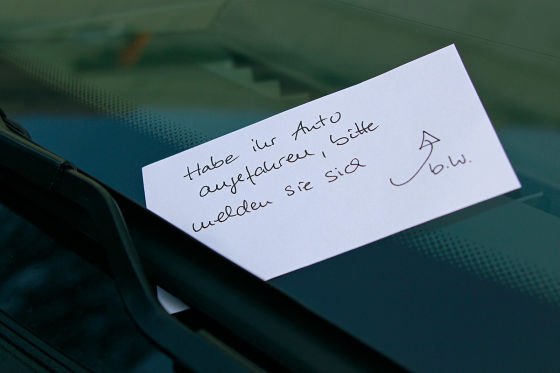 Habe ihr Auto
angefahren, bitte
melden sie sich
b.w.